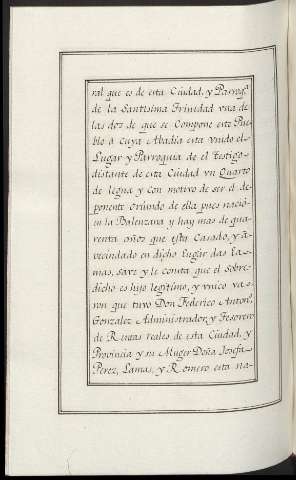 ral que es de esta Ciudad, y Parroqª
de la Santisima Trinidad vna de
las dos de que se Compone este Pue
blo â cuya Abadîa esta vnido el
Lugar y Parroquia de el Testigo
distante de esta Ciudad vn Quarto
de legua y con motivo de ser el de
ponente oriundo de ella pues naciô
en la Balenzana y hay mas de qua
renta años que esta Casado, y a
vecindado en dicho Lugar das La
mas, save y le consta que el Sobre
dicho es hijo legitimo, y vnico va
ron que tuvo Don Federico Antonº
Gonzalez Administrador, y Tesorero
de Rentas reales de esta Ciudad, y
Provincia y su Muger Doña Josefa
Perez, Lamas, y Romero esta na